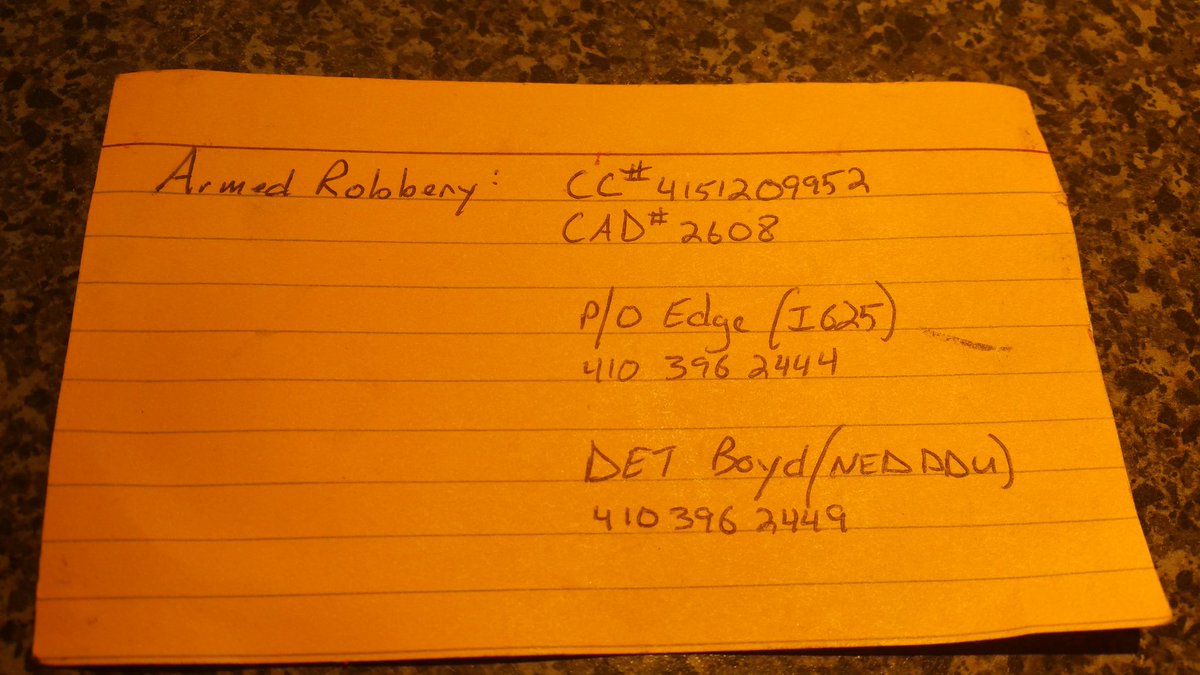 Armed Robbery: CC# 4151209952
CAD# 2608
P/O Edge (I625)
410 396 2444
DET Boyd (NED DDU)
410 396 2449